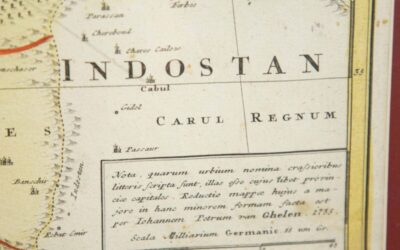 Parassan
Cherebend
Chares Cailow
INDOSTAN
Cabul
35
Gidol
CARUL REGNUM
ES
Passaur
Banschu
Nota, quarum urbium nomina crassioribus
litteris scripta sunt, illas esse cujus libet provin=
ciæ capitales. Reductio mappæ hujus a ma=
jore in hanc minorem formam facta est
per Iohannem Petrum van Ghelen. 1735.
Scala Milliarium Germanic 15 um Gr.